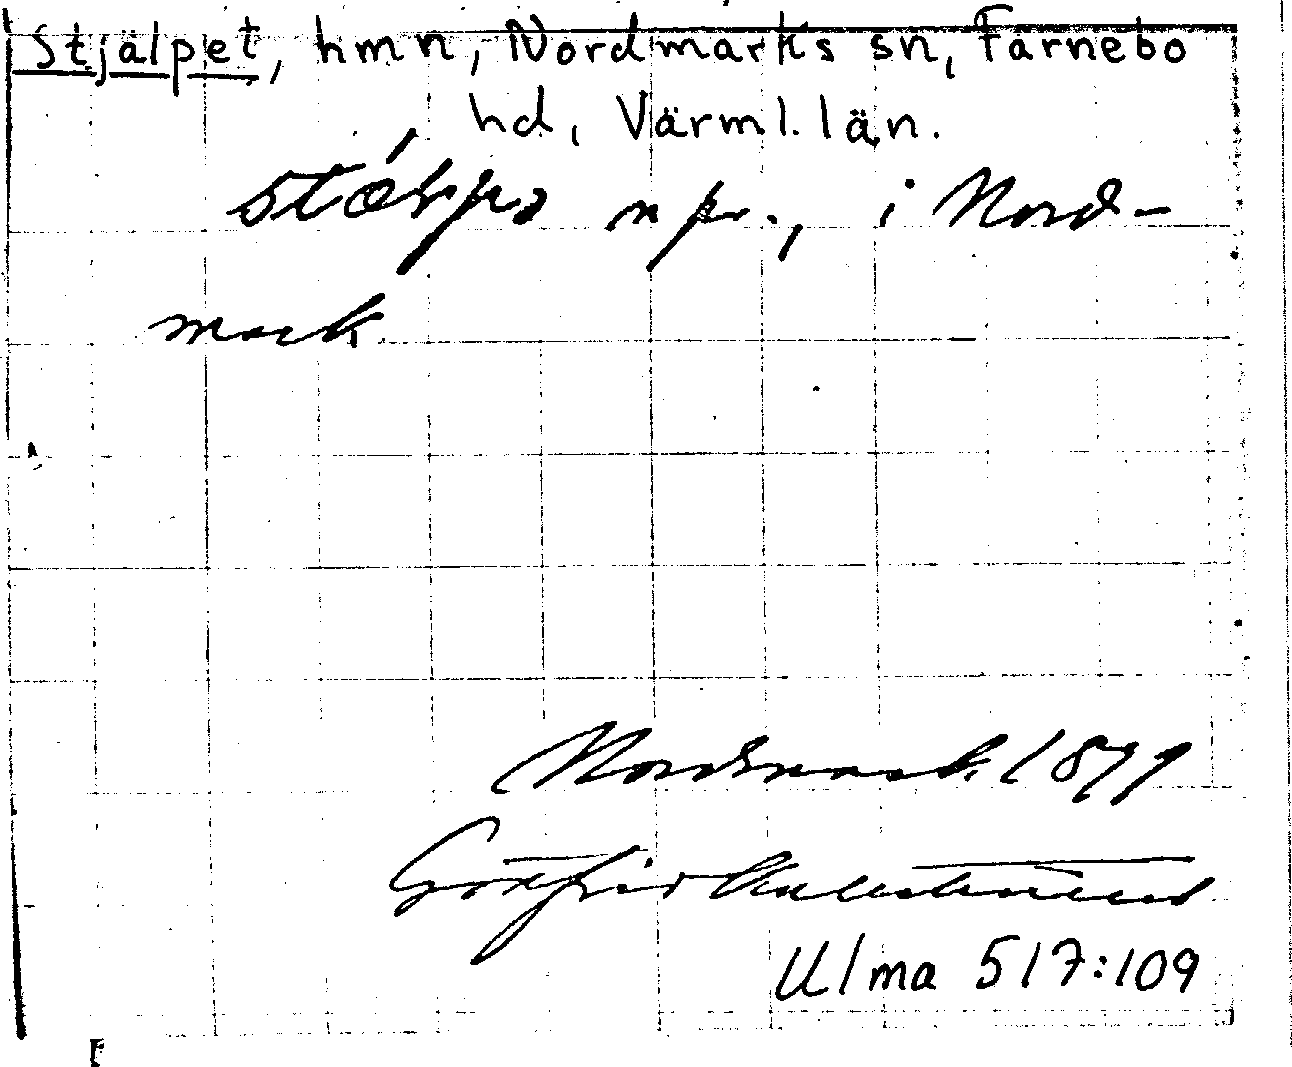 Stjälpet, hmn, Nordmarks sn, Färnebo
hd, Värml. län.
npr., i Nord-
mark
Nordmark. 1879
Götfrid Kallstenius
Ulma 517:109